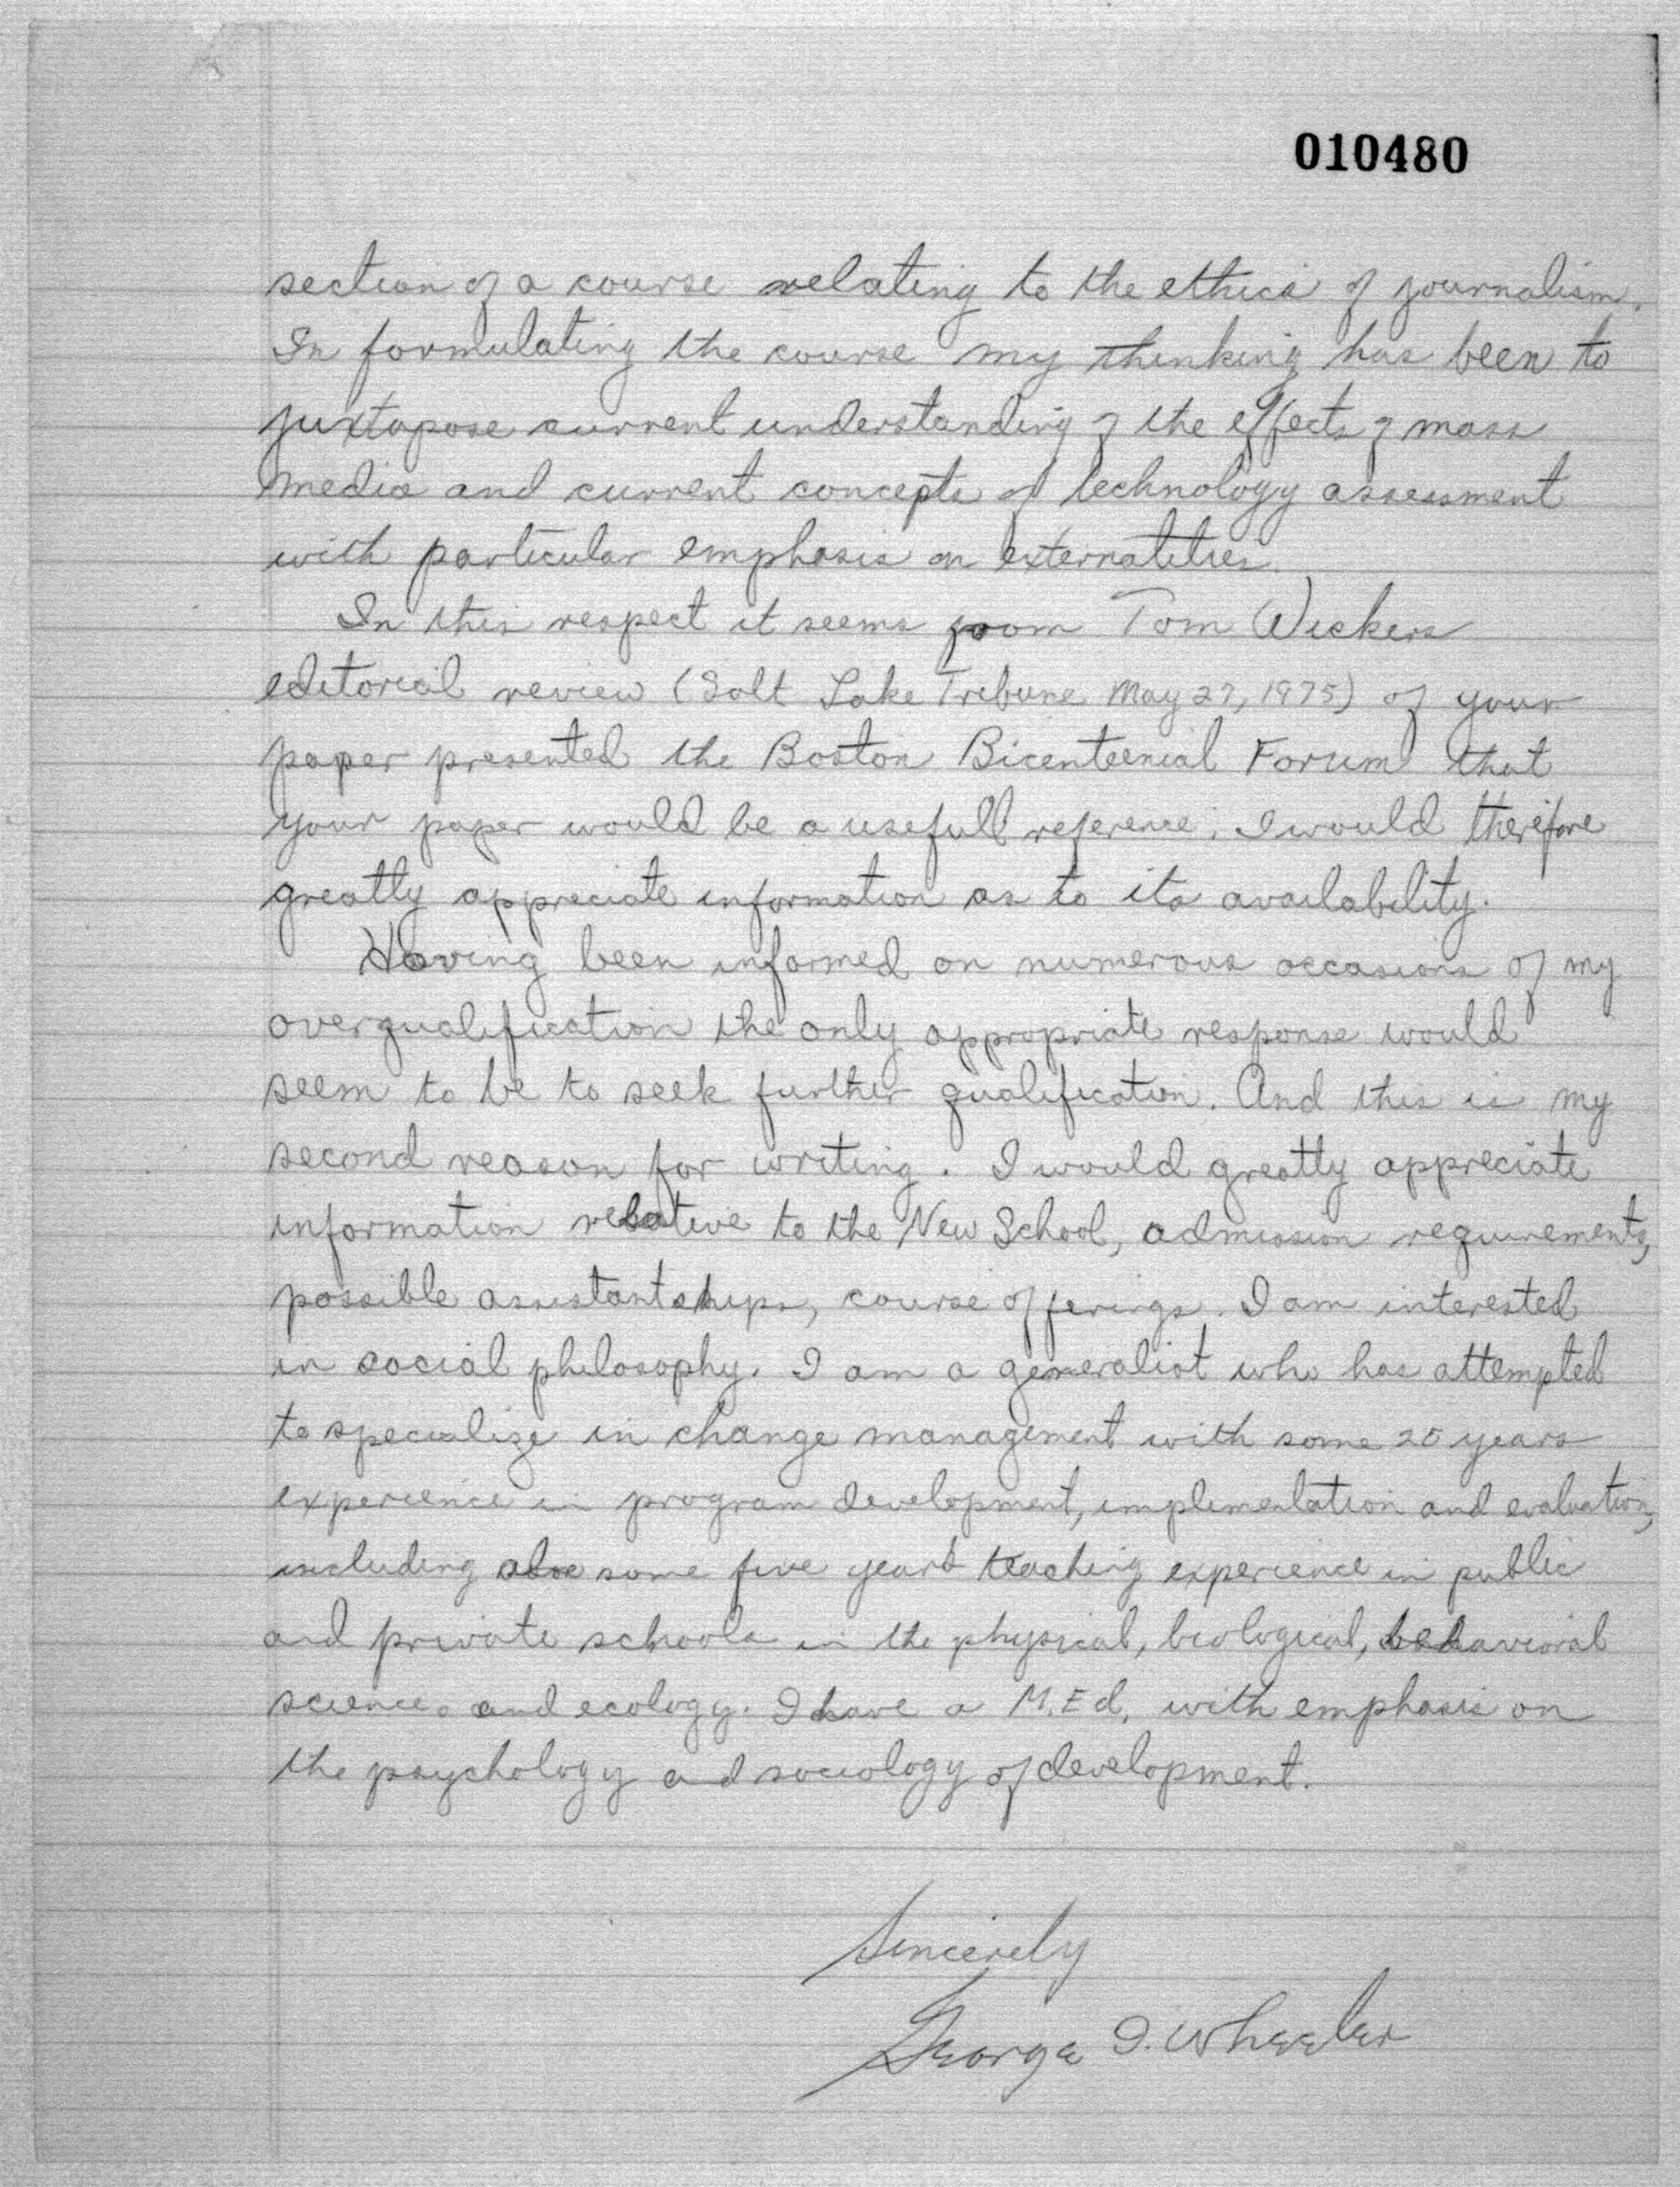 010480
section of a course relating to the ethics of journalism.
In formulating the course my thinking has been to
juxtapose current understanding of the effects of mass
media and current concepts of technology assessment
with particular emphasis on externatities.
In this respect it seems from Tom Wickers
editorial review (Salt Lake Tribune May 27, 1975) of your
paper presented the Boston Bicenteenial Forum that
your paper would be a usefull reference. I would therefore
greatly appreciate information as to its availability.
Having been informed on numerous occasions of my
overqualification the only appropriate response would
seem to be to seek further qualification. And this is my
second reason for writing. I would greatly appreciate
information relative to the New School, admission requirements,
possible assistantships, course offerings. I am interested
in social philosophy. I am a generalist who has attempted
to specialize in change management with some 25 years
experience in program development, implimentation and evaluation,
including some five years teaching experience in public
and private schools in the physical, biological, behavioral
science. and ecology. I have a M.Ed. with emphasis on
the psychology and sociology of development.
Sincerely
George I. Wheeler